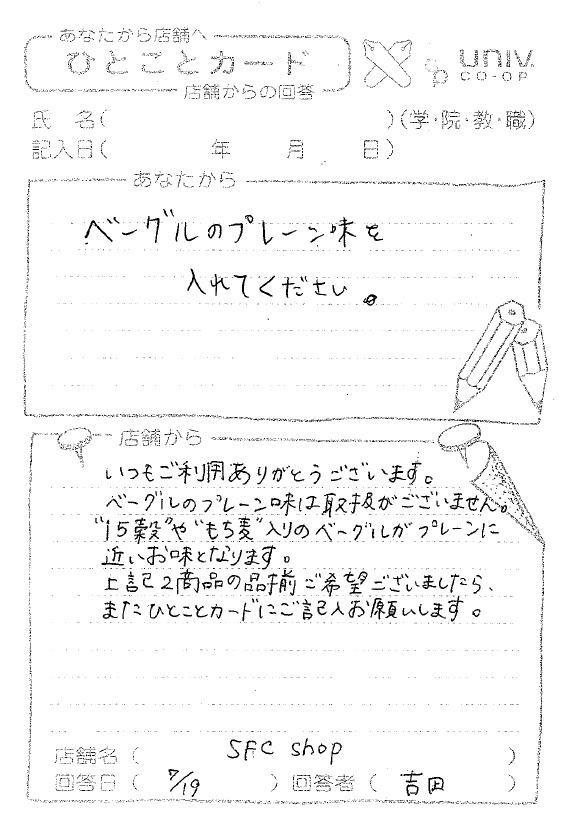 あなたから店舗へ
ひとことカード
店舗からの回答
univ.
CO-OP
氏 名( )(学・院・教・職)
記入日( 年 月 日)
あなたから
ベーグルのプレーン味を
入れてください。
店舗から
いつもご利用ありがとうございます。
ベーグルのプレーン味は取扱がございません。
"15穀"や"もち麦"入りのベーグルがプレーンに
近いお味となります。
上記2商品の品揃ご希望ございましたら、
またひとことカードにご記入お願いします。
店舗名( SFC shop )
回答日( 7/19 ) 回答者( 吉田 )